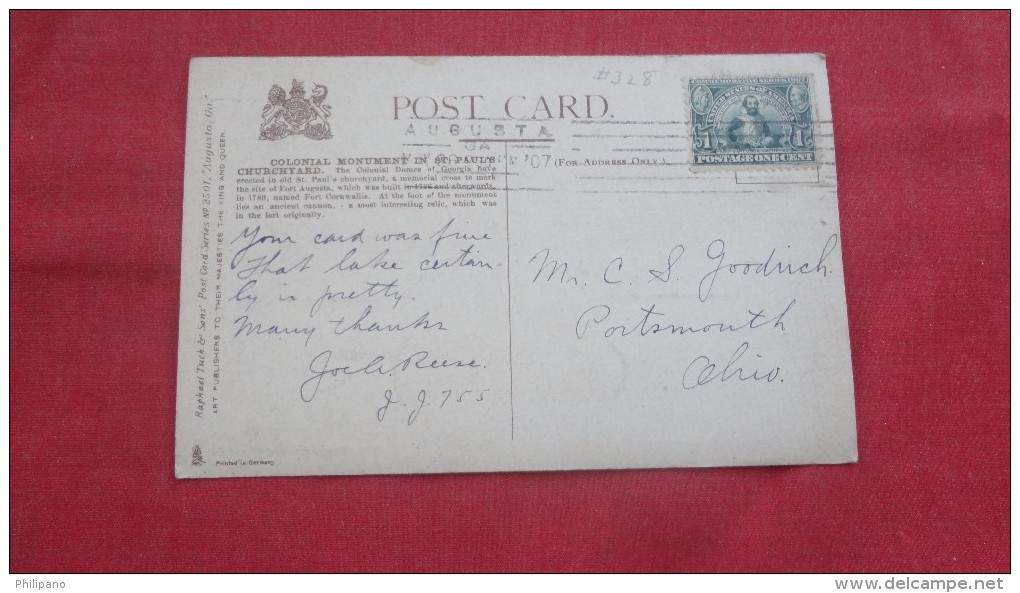 #328
POST CARD.
AUGUSTA
GA
'07
(FOR ADDRESS ONLY.)
COMMEMORATIVE SERIES 1907
UNITED STATES OF AMERICA
1 1
POSTAGE ONE CENT
COLONIAL MONUMENT IN ST. PAUL'S
CHURCHYARD. The Colonial Dames of Georgia have
erected in old St. Paul's churchyard, a memorial cross to mark
the site of Fort Augusta, which was built in 1736 and afterwards,
in 1780, named Fort Cornwallis. At the foot of the monument
lies an ancient cannon, - a most interesting relic, which was
in the fort originally.
Your card was fine
That lake certain-
ly is pretty.
Many thanks
Joe A. Reese.
J. J. 755
Mr. C. S. Goodrich.
Portsmouth
Ohio.
Raphael Tuck & Sons' Post Card Series No 2501, "Augusta, Ga."
ART PUBLISHERS TO THEIR MAJESTIES THE KING AND QUEEN.
Printed in Germany
Philipano
www.delcampe.net